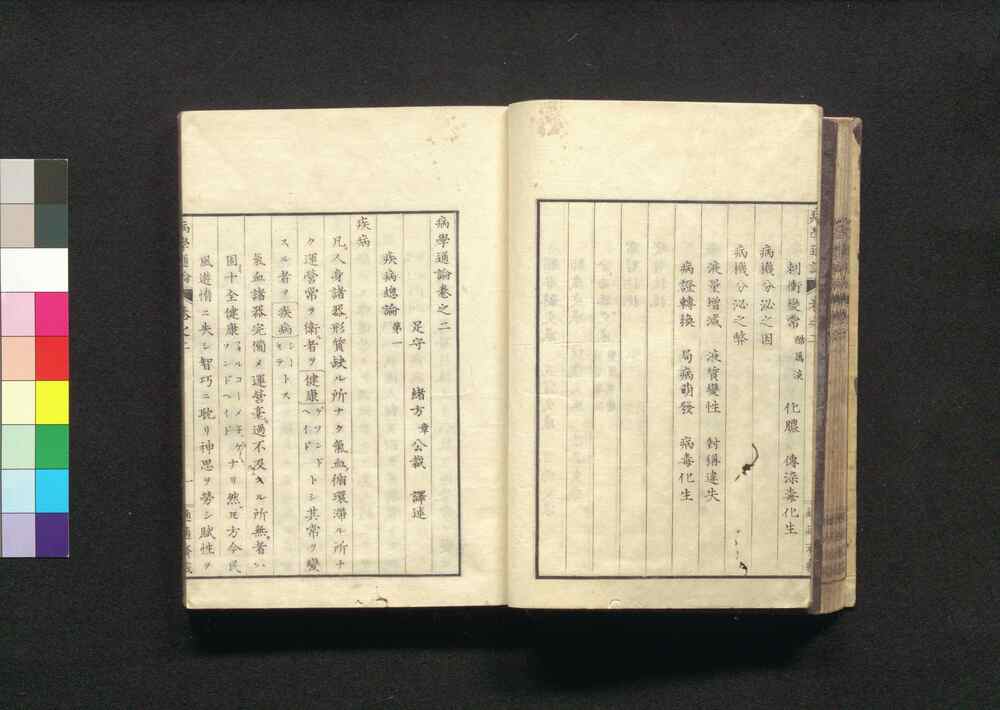 刺衝變常 酷厲淡 化膿 傳染毒化生
病機分泌之因
病機分泌之弊
液量增減 液質變性 對稱違失
病證轉換 局病萌發 病毒化生
病學通論卷之二
足守 緒方章公裁 譯述
疾病總論 第一
疾病
凡人身諸器形質缺ル所ナク氣血循環滯ル所ナ
ク運營常ヲ衛者ヲ健康 ゲソンドヘイド トシ其常ヲ變
スル者ヲ疾病 シーキテ トス
氣血諸器完備メ運營毫過不及スル所無者ハ
固十全健康 フォルコーメ子ゲソンドヘイド ナリ然モ方今民
風遊惰ニ失シ智巧ニ耽リ神思ヲ勞シ賦性ヲ
病學通論 卷之二 一